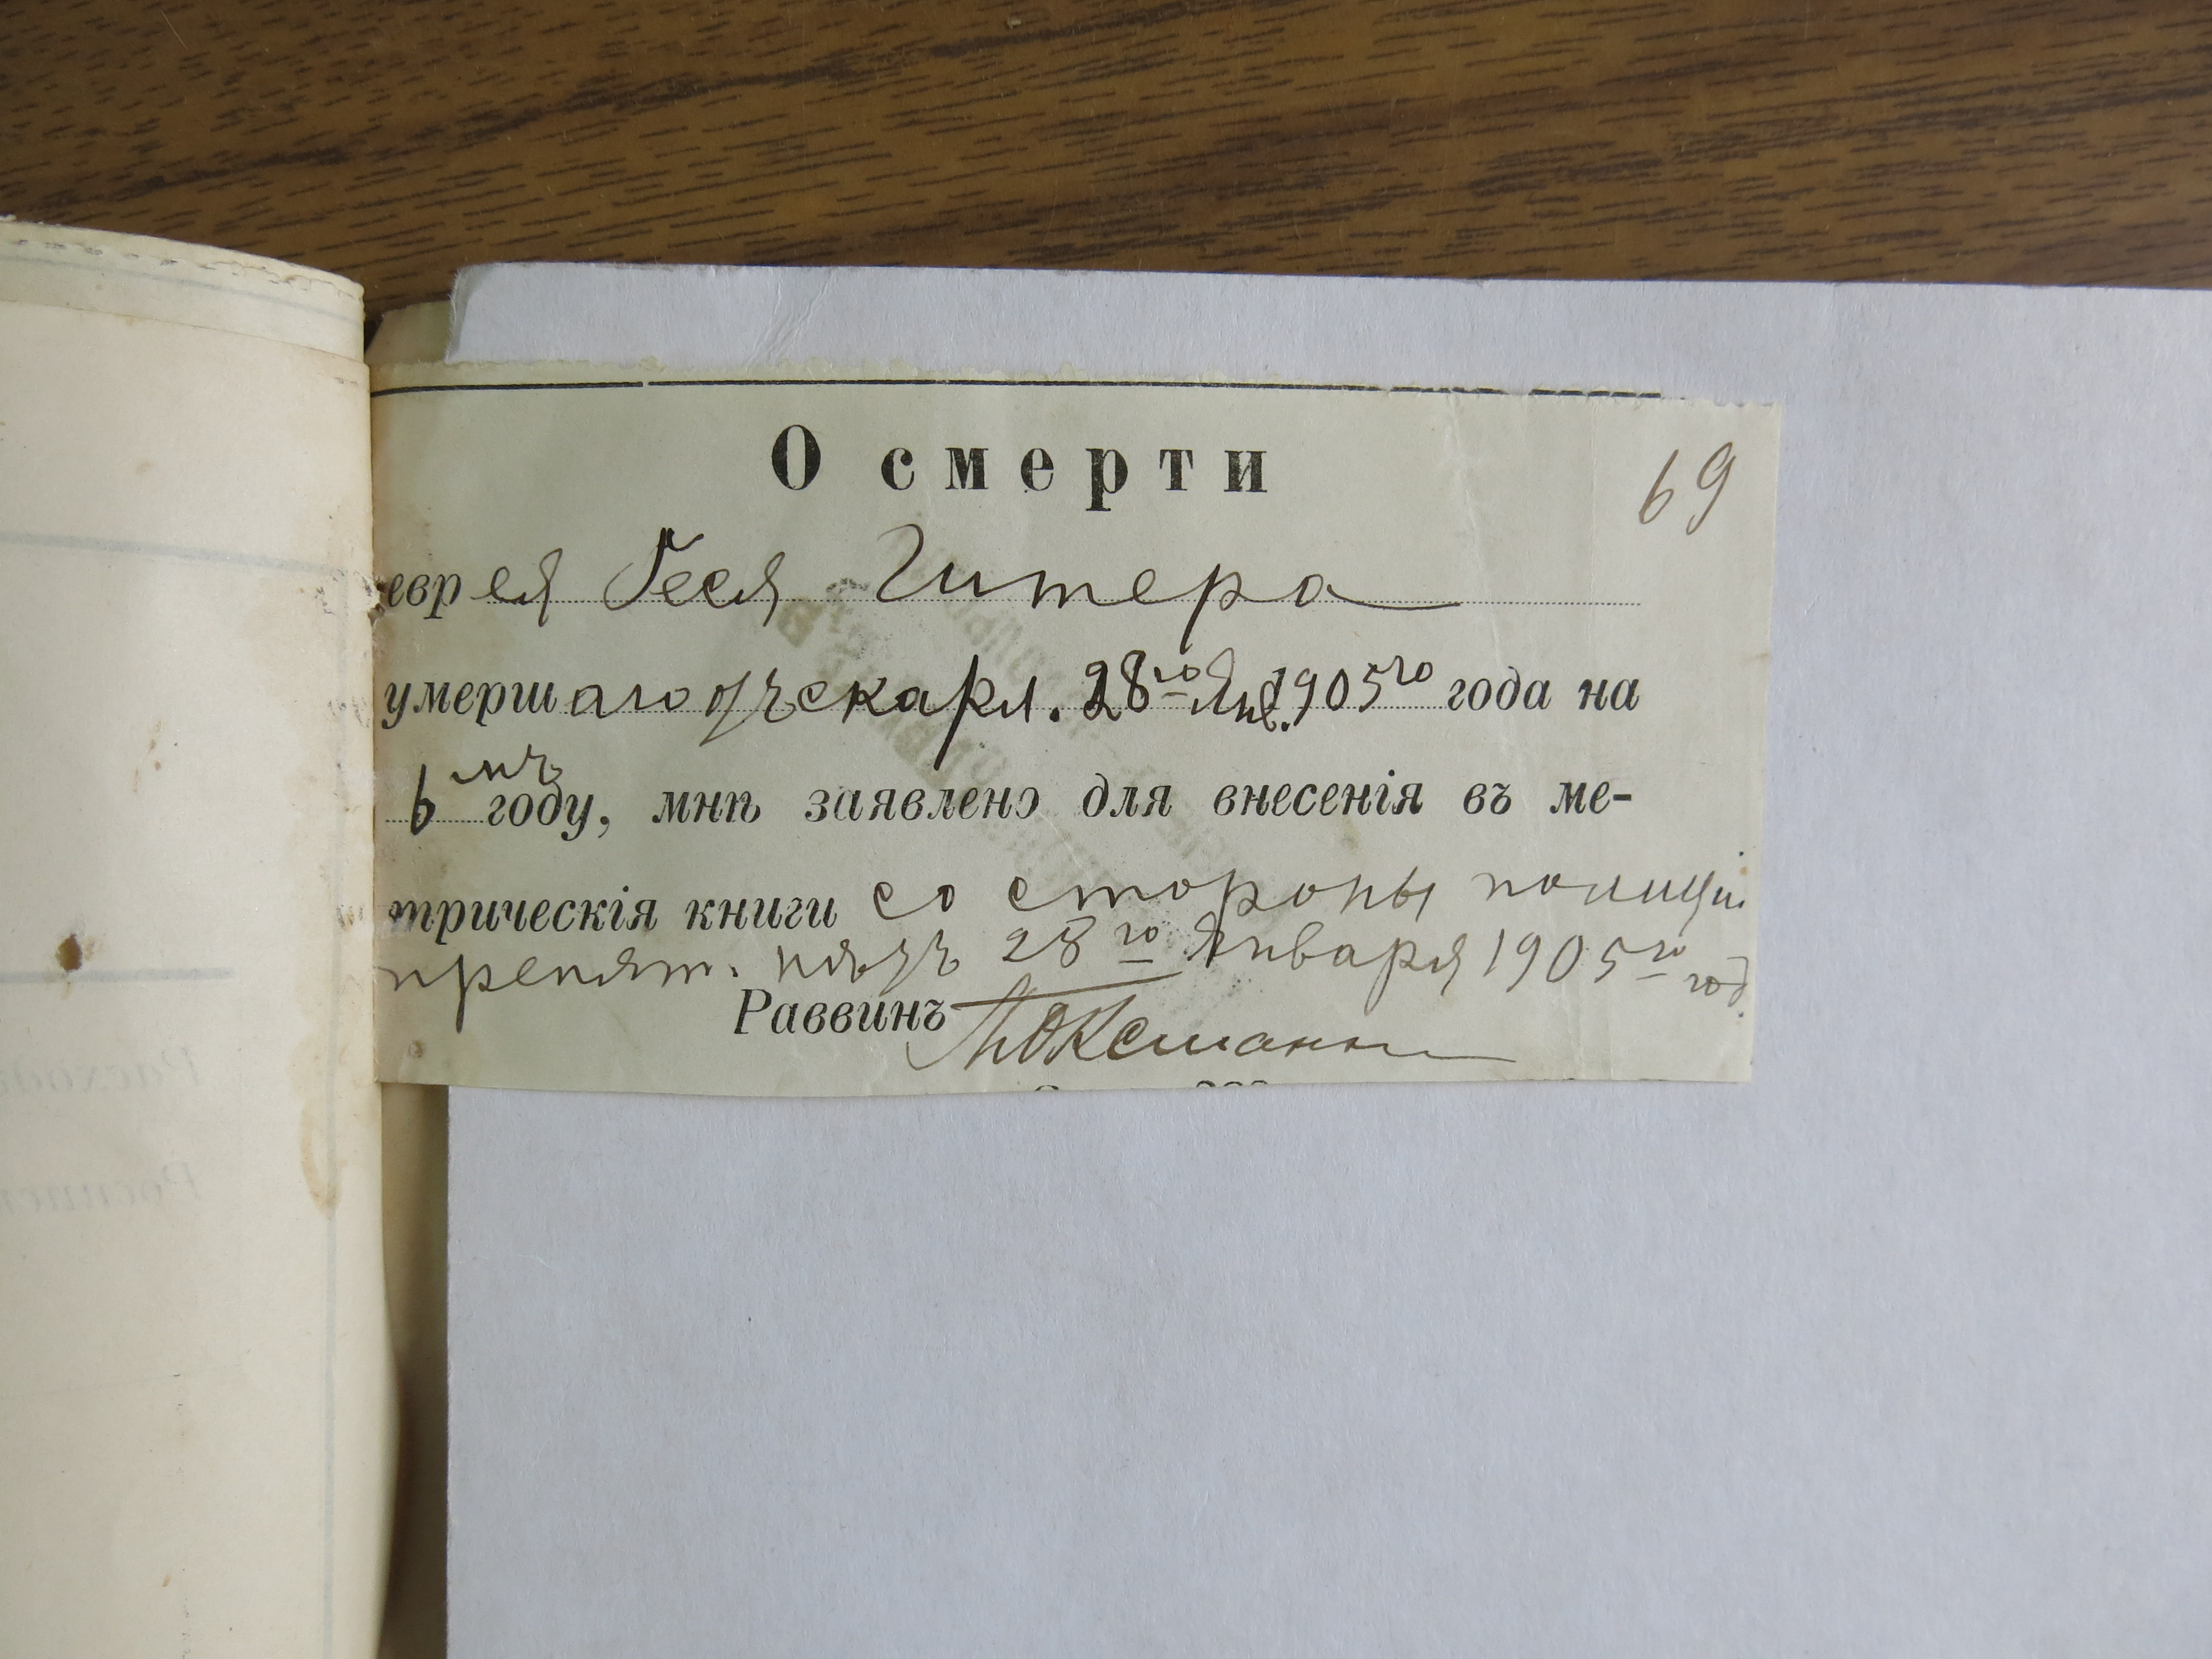 О смерти
69
еврея Геся Гитера
умершаго отъ скарл. 28го Янв. 1905го года на
6мъ году, мнѣ заявлено для внесенія въ ме-
трическія книги со стороны полиціи
препят. нѣтъ 28го Января 1905го год.
Раввинъ